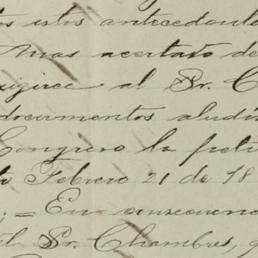 os estos antecedent
mas acertado de
exigirá al Sr. C
documentos aludi
Congreso la peti
to Febrero 21 de 18
; = En consecuenc
el Sr. Chambres, q